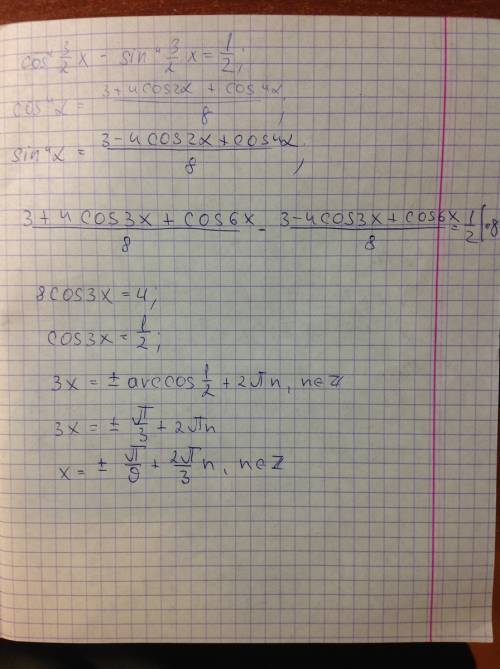 cos⁴ 3/2 x - sin⁴ 3/2 x = 1/2;
cos⁴α = (3+4cos2α + cos4α)/8;
sin⁴α = (3-4cos2α+cos4α)/8;
(3+4cos3x+cos6x)/8 - (3-4cos3x+cos6x)/8 = 1/2 |·8
8cos3x=4;
cos3x=1/2;
3x = ± arccos 1/2 + 2πn, n∈Z
3x = ± π/3 + 2πn
x = ± π/9 + 2π/3 n, n∈Z